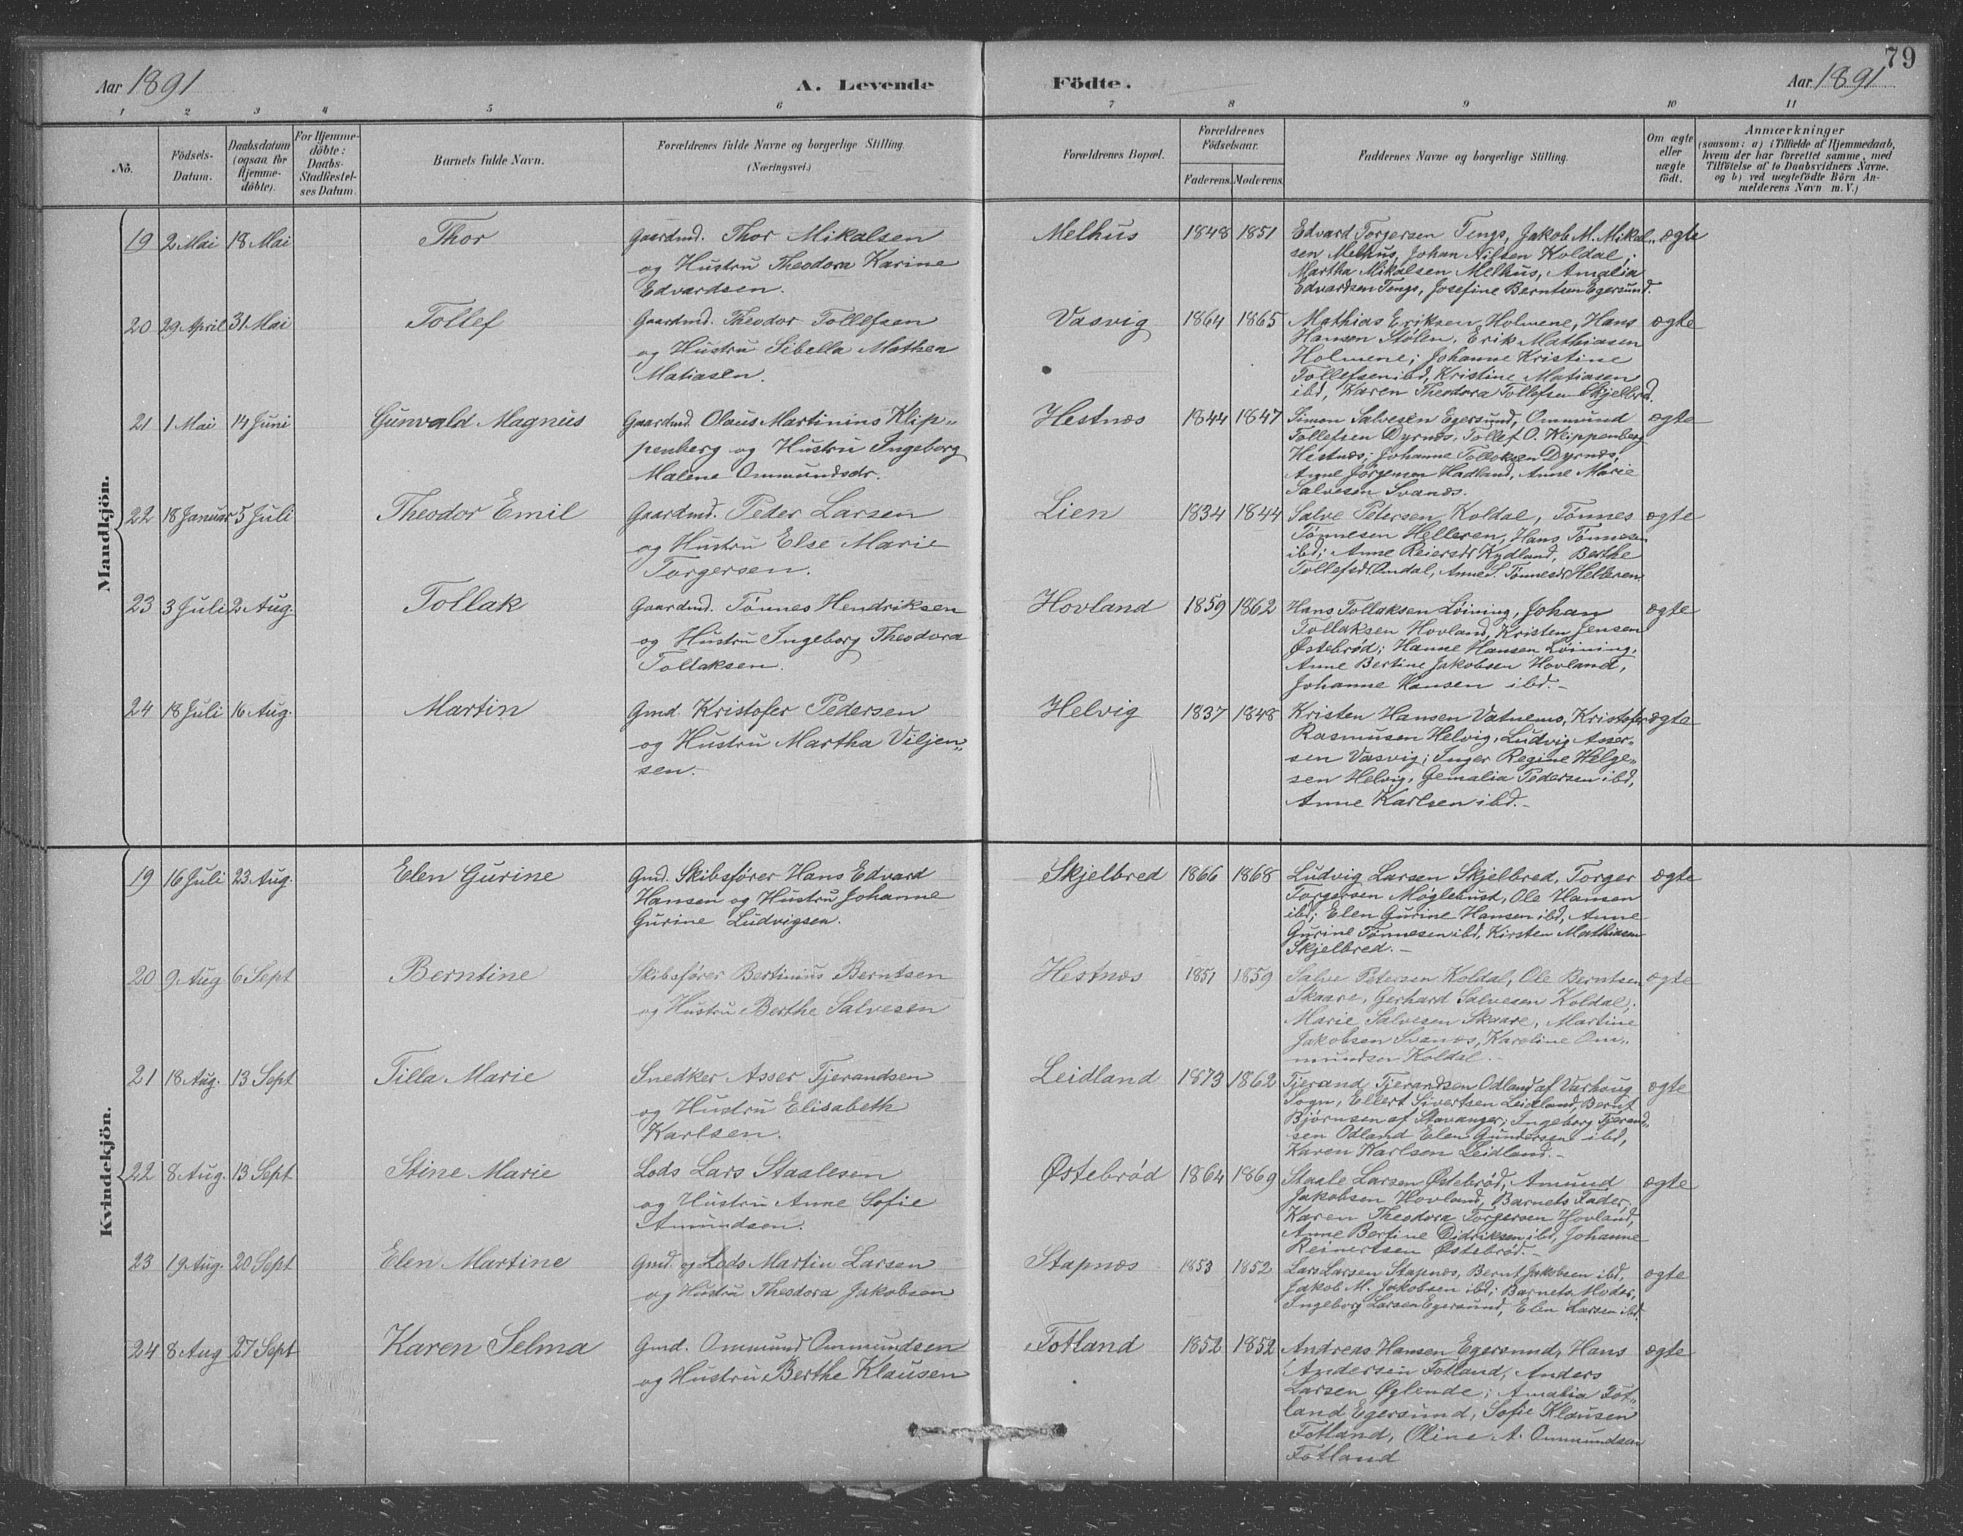 79
Aar 1891
A. Levende
Födte.
Aar 1891
1 2 3 4 5 6 7 8 9 10 11
No.
Födsels-Datum.
Daabsdatum (ogsaa for Hjemmedöbte).
For Hjemmedöbte: Daabs-Stadfestelses Datum.
Barnets fulde Navn.
Forældrenes fulde Navne og borgerlige Stilling.
(Næringsvei.)
Forældrenes Bopæl.
Forældrenes Födselsaar.
Faderens. Moderens.
Faddernes Navne og borgerlige Stilling.
Om ægte eller uægte födt.
Anmærkninger
(saasom: a) i Tilfælde af Hjemmedaab,
hvem der har forrettet samme, med
Tilföielse af to Daabsvidners Navne.
og b) ved uægtefödte Börn An-
melderens Navn m. V.)
Mandkjön.
19 2 Mai 18 Mai Thor Gaardmd. Thor Mikalsen
og Hustru Theodora Karine
Edvardsen.
Melhus 1848 1851 Edvard Torgersen Tengs, Jakob M. Mikal- ægte
sen Melhus, Johan Nilsen Koldal;
Martha Mikalsen Melhus, Amalia
Edvardsen Tengs, Josefine Berntsen Egersund.
20 29 April 31 Mai Tollef Gaardmd. Theodor Tollefsen
og Hustru Sibella Mathea
Matiasen.
Vasvig 1864 1865 Mathias Eriksen Holmene, Hans ægte
Hansen Stølen, Erik Mathiasen
Holmene; Johanne Kristine
Tollefsen ibd, Kristine Matiasen
ibd, Karen Theodora Tollefsen Skjelbrd.
21 1 Mai 14 Juni Gunvald Magnus Gaardmd Olaus Martinius Klip-
penberg og Hustru Ingeborg
Malene Ommundsdr.
Hestnæs 1844 1847 Simon Salvesen Egersund, Ommund ægte
Tollefsen Dyrnæs, Tollef O. Klippenberg
Hestnæs; Johanne Tollaksen Dyrnæs,
Anne Jørgensen Hadland, Anne Marie
Salvesen Svanæs.
22 18 Januar 5 Juli Theodor Emil Gaardmd. Peder Larsen
og Hustru Else Marie
Torgersen.
Lien 1834 1844 Salve Petersen Koldal, Tønnes ægte
Tønnesen Helleren, Hans Tønnesen
ibd; Anne Reiersdr Kydland, Berthe
Tollefsdr Omdal, Anne S. Tønnesdr Helleren
23 3 Juli 2 Aug. Tollak Gaardmd. Tønnes Hendriksen
og Hustru Ingeborg Theodora
Tollaksen.
Hovland 1859 1862 Hans Tollaksen Løining, Johan ægte
Tollaksen Hovland, Kristen Jensen
Østebrød; Hanne Hansen Løining,
Anne Bertine Jakobsen Hovland,
Johanne Hansen ibd.-
24 18 Juli 16 Aug. Martin Gmd. Kristofer Pedersen
og Hustru Martha Viljen-
sen.-
Helvig 1837 1848 Kristen Hansen Vatnemo, Kristofer ægte
Rasmusen Helvig, Ludvig Asser-
sen Vasvig; Inger Regine Helge-
sen Helvig, Gemalia Pedersen ibd,
Anne Karlsen ibd.-
Kvindekjön.
19 16 Juli 23 Aug. Elen Gurine Gmd. Skibsfører Hans Edvard
Hansen og Hustru Johanne
Gurine Ludvigsen.
Skjelbred 1866 1868 Ludvig Larsen Skjelbred, Torger ægte
Torgersen Møglebust, Ole Hansen
ibd; Elen Gurine Hansen ibd, Anne
Gurine Tønnesen ibd, Kirsten Mathiasen
Skjelbred.-
20 9 Aug 6 Sept Berntine Skibsfører Bertinius Berntsen
og Hustru Berthe Salvesen
Hestnæs 1851 1859 Salve Petersen Koldal, Ole Berntsen ægte
Skaare, Gerhard Salvesen Koldal;
Marie Salvesen Skaare, Martine
Jakobsen Svanæs, Karoline Om-
mundsen Koldal.-
21 18 Aug. 13 Sept Tilla Marie Snedker Asser Tjerandsen
og Hustru Elisabeth
Karlsen.
Leidland 1873 1862 Tjerand Tjerandsen Odland af Varhoug ægte
Sogn, Ellert Sivertsen Leidland, Bernt
Bjørnsen af Stavanger; Ingeborg Tjerand-
sen Odland Elen Gundersen ibd,
Karen Karlsen Leidland.-
22 8 Aug. 13 Sept Stine Marie Lods Lars Staalesen
og Hustru Anne Sofie
Amundsen.
Østebrød 1864 1869 Staale Larsen Østebrød, Amund ægte
Jakobsen Hovland, Barnets Fader,
Karen Theodora Torgersen Hovland,
Anne Bertine Didriksen ibd, Johanne
Reinertsen Østebrød.-
23 19 Aug. 20 Sept Elen Martine Gmd. og Lods Martin Larsen
og Hustru Theodora Jakobsen
Stapnæs 1853 1852 Lars Larsen Stapnæs, Bernt Jakobsen ibd, ægte
Jakob M. Jakobsen ibd; Barnets Moder,
Ingeborg Larsen Egersund, Elen Larsen ibd.
24 8 Aug 27 Sept Karen Selma Gmd. Ommund Ommundsen
og Hustru Berthe Klausen
Fotland 1852 1852 Andreas Hansen Egersund, Hans ægte
Andersen Fotland, Anders
Larsen Øglende; Amalia Fot-
land Egersund, Sofie Klausen
Fotland, Oline A. Ommundsen
Fotland